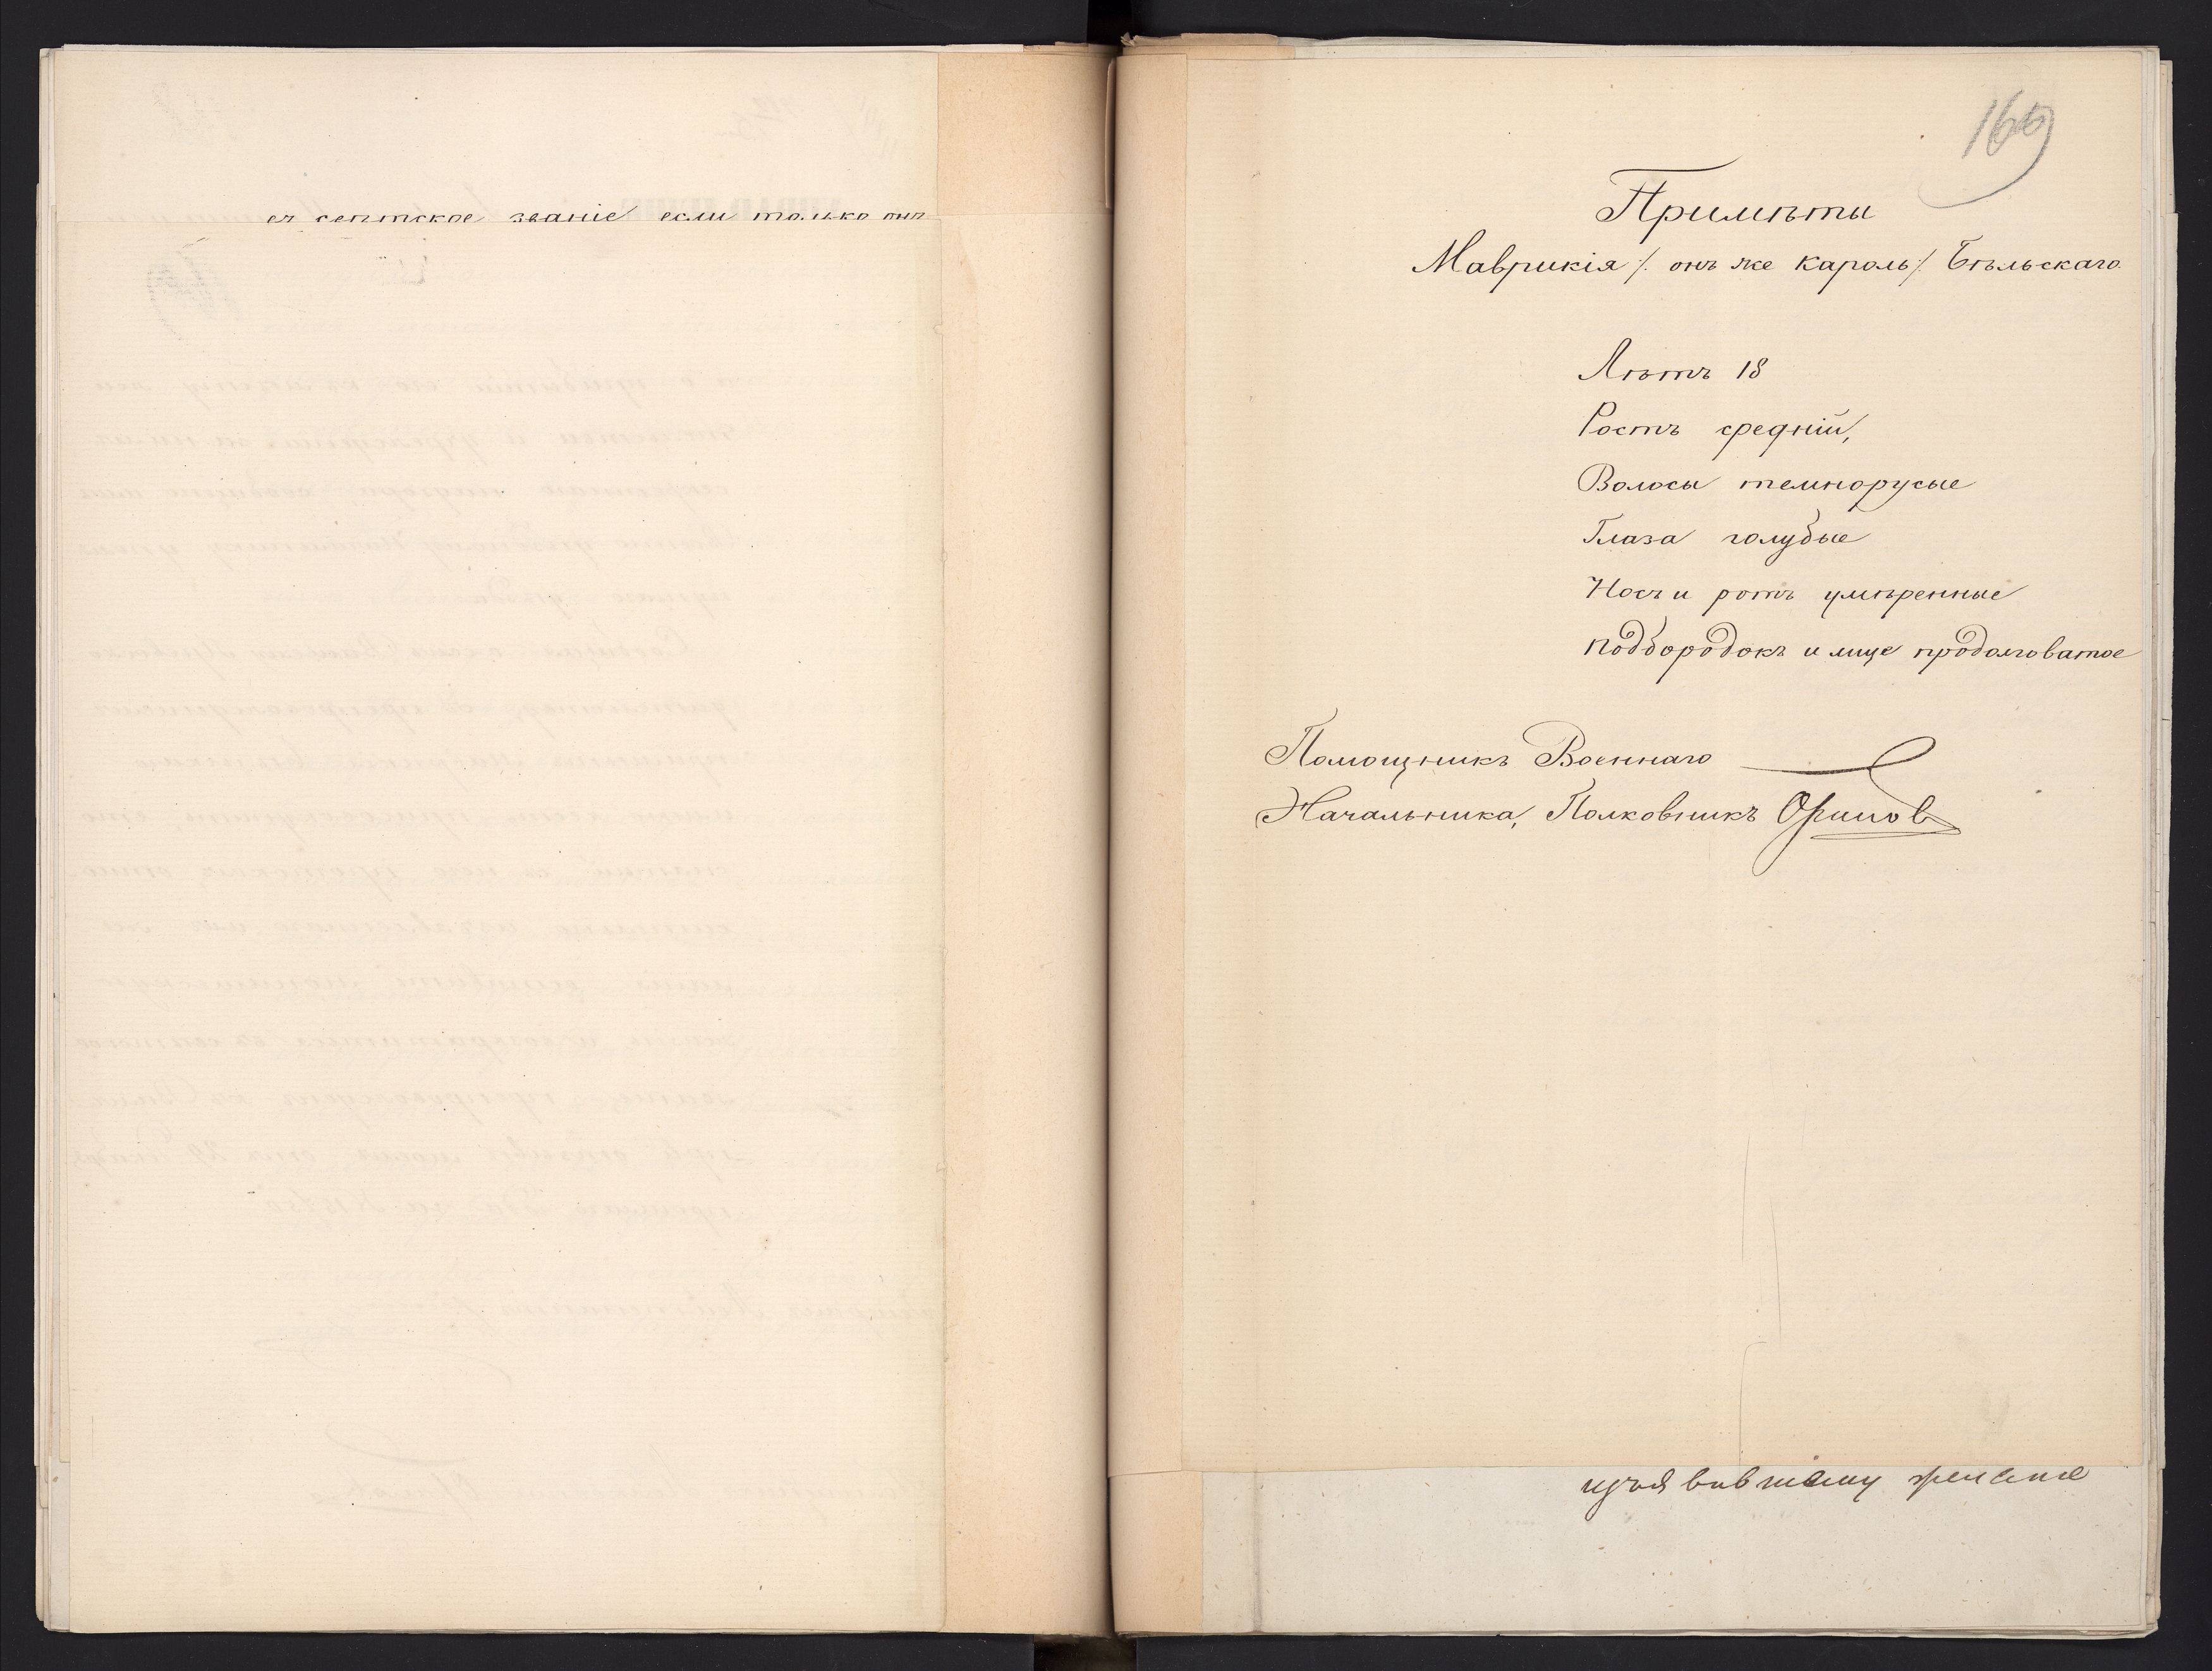 въ свѣтское званіе если только онъ
169
Примѣты
Маврикія /: онъ же Кароль :/ Бѣльскаго.
Лѣтъ 18
Ростъ средній,
Волосы темнорусые
Глаза голубые
Носъ и ротъ умѣренные
подбородокъ и лице продолговатое
Помощникъ Военнаго
Начальника, Полковникъ
изъявившему желаніе